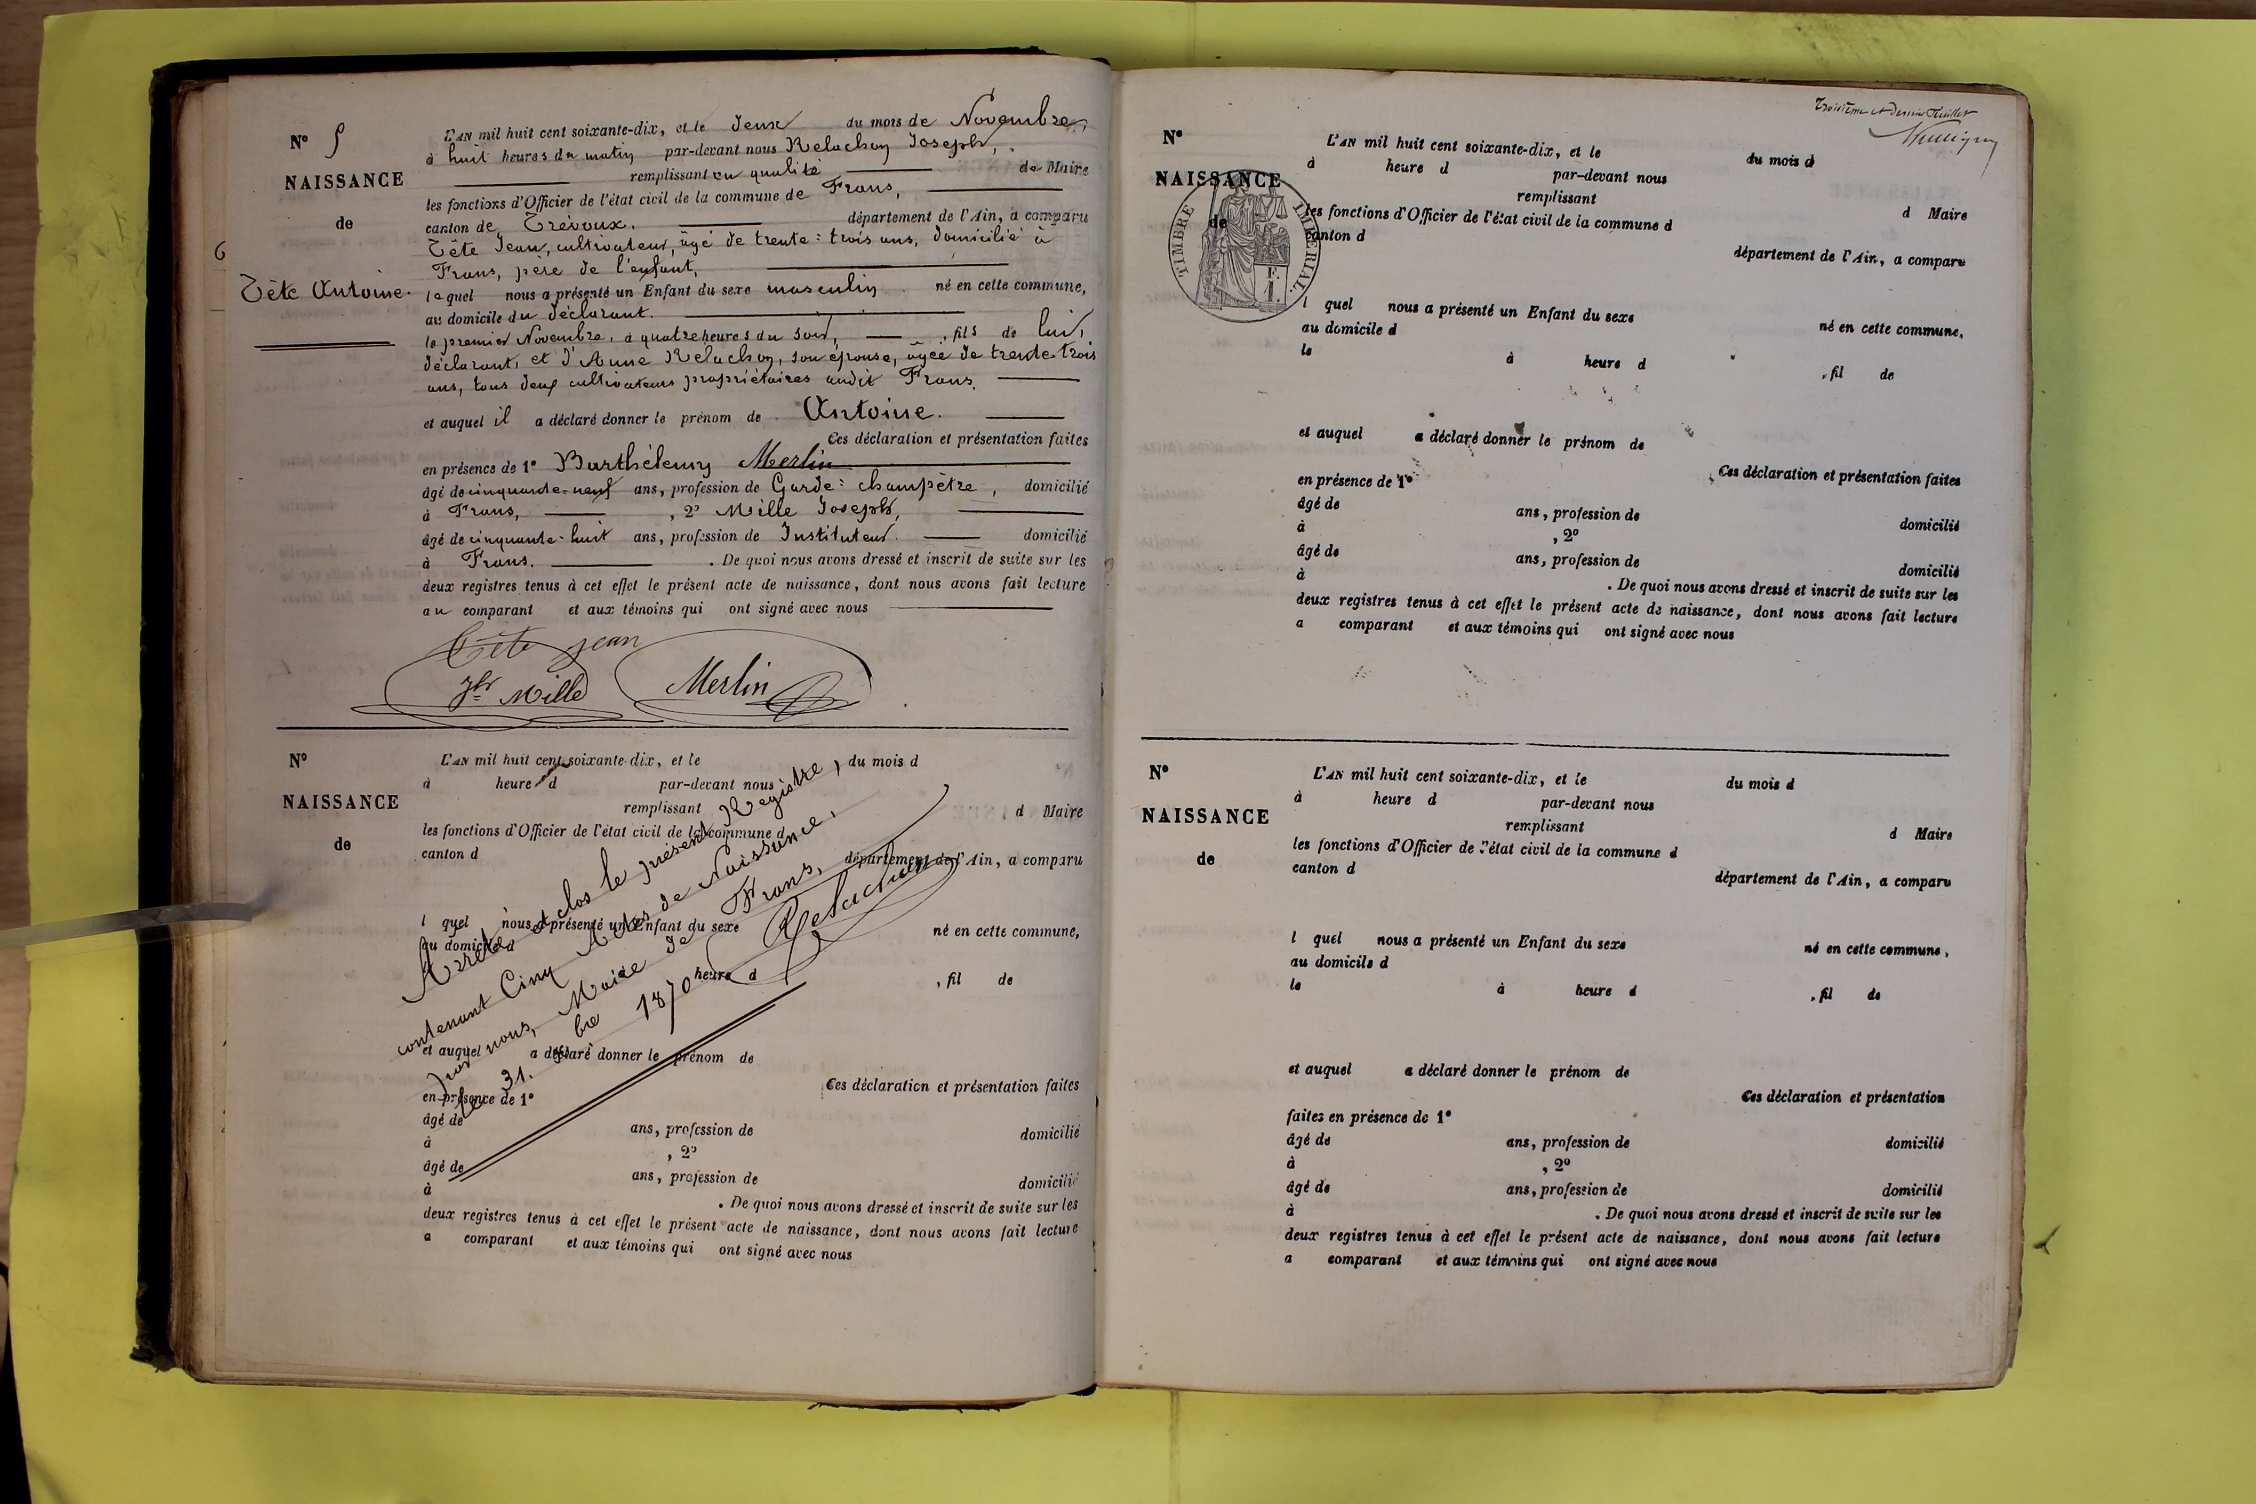 N° 5
NAISSANCE
de
Tête Antoine.
6
L'AN mil huit cent soixante-dix, et le deux du mois de Novembre,
à huit heures du matin par-devant nous Relachon Joseph,
remplissant en qualité de Maire
les fonctions d'Officier de l'état civil de la commune de Frans,
canton de Trévoux. département de l'Ain, a comparu
Tête Jean, cultivateur, âgé de trente-trois ans, domicilié à
Frans, père de l'enfant,
lequel nous a présenté un Enfant du sexe masculin né en cette commune,
au domicile du déclarant.
le premier Novembre, à quatre heures du soir, , fils de lui,
déclarant, et d'Anne Relachon, son épouse, âgée de trente trois
ans, tous deux cultivateurs propriétaires audit Frans.
et auquel il a déclaré donner le prénom de Antoine.
Ces déclaration et présentation faites
en présence de 1° Barthélemy Merlin
âgé de cinquante-neuf ans, profession de Garde-champêtre, domicilié
à Frans, , 2° Mille Joseph,
âgé de cinquante-huit ans, profession de Instituteur. domicilié
à Frans. . De quoi nous avons dressé et inscrit de suite sur les
deux registres tenus à cet effet le présent acte de naissance, dont nous avons fait lecture
au comparant et aux témoins qui ont signé avec nous
Tête jean
Jh Mille Merlin
N°
NAISSANCE
de
L'AN mil huit cent soixante-dix, et le du mois d
à heure d par-devant nous
remplissant d Maire
les fonctions d'Officier de l'état civil de la commune d
canton d département de l'Ain, a comparu
l quel nous a présenté un Enfant du sexe né en cette commune,
au domicile d
heure d , fil de
et auquel a déclaré donner le prénom de
Ces déclaration et présentation faites
en présence de 1°
âgé de ans, profession de domicilié
à , 2°
âgé de ans, profession de domicilié
à . De quoi nous avons dressé et inscrit de suite sur les
deux registres tenus à cet effet le présent acte de naissance, dont nous avons fait lecture
a comparant et aux témoins qui ont signé avec nous
Arrêté et clos le présent Registre,
contenant Cinq Actes de Naissance,
par nous, Maire de Frans,
le 31. Xbre 1870
Relachon
Troisième et dernier Feuillet
N°
NAISSANCE
de
TIMBRE IMPÉRIAL.
L'AN mil huit cent soixante-dix, et le du mois d
à heure d par-devant nous
remplissant d Maire
les fonctions d'Officier de l'état civil de la commune d
canton d département de l'Ain, a comparu
l quel nous a présenté un Enfant du sexe né en cette commune,
au domicile d
le à heure d , fil de
et auquel a déclaré donner le prénom de
Ces déclaration et présentation faites
en présence de 1°
âgé de ans, profession de domicilié
à , 2°
âgé de ans, profession de domicilié
à . De quoi nous avons dressé et inscrit de suite sur les
deux registres tenus à cet effet le présent acte de naissance, dont nous avons fait lecture
a comparant et aux témoins qui ont signé avec nous
N°
NAISSANCE
de
L'AN mil huit cent soixante-dix, et le du mois d
à heure d par-devant nous
remplissant d Maire
les fonctions d'Officier de l'état civil de la commune d
canton d département de l'Ain, a comparu
l quel nous a présenté un Enfant du sexe né en cette commune,
au domicile d
le à heure d , fil de
et auquel a déclaré donner le prénom de
Ces déclaration et présentation
faites en présence de 1°
âgé de ans, profession de domicilié
à , 2°
âgé de ans, profession de domicilié
à . De quoi nous avons dressé et inscrit de suite sur les
deux registres tenus à cet effet le présent acte de naissance, dont nous avons fait lecture
a comparant et aux témoins qui ont signé avec nous